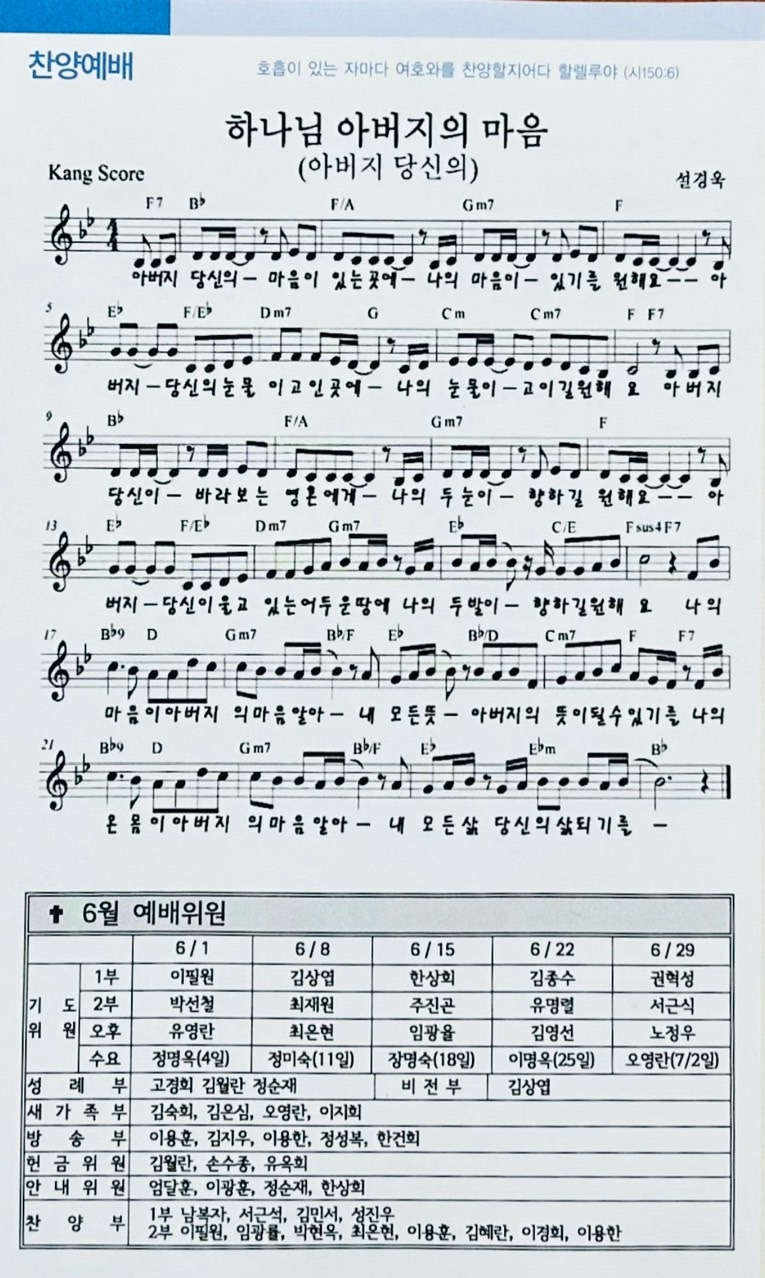 찬양예배
호흡이 있는 자마다 여호와를 찬양할지어다 할렐루야 (시150:6)
하나님 아버지의 마음
(아버지 당신의)
Kang Score
설경욱
F7 B♭ F/A Gm7 F
아버지 당신의— 마음이 있는곳에— 나의 마음이— 있기를 원해요—— 아
5 E♭ F/E♭ Dm7 G Cm Cm7 F F7
버지—당신의눈물 이고인곳에— 나의 눈물이—고이길원해 요 아버지
9 B♭ F/A Gm7 F
당신이— 바라보는 영혼에게— 나의 두눈이— 향하길 원해요—— 아
13 E♭ F/E♭ Dm7 Gm7 E♭ C/E Fsus4 F7
버지—당신이울고 있는어두운땅에 나의 두발이— 향하길원해 요 나의
17 B♭9 D Gm7 B♭/F E♭ B♭/D Cm7 F F7
마음이아버지 의마음알아— 내 모든뜻— 아버지의 뜻이될수있기를 나의
21 B♭9 D Gm7 B♭/F E♭ E♭m B♭
온 몸이아버지 의마음알아— 내 모든삶 당신의삶되기를 —
✝ 6월 예배위원
6/1 6/8 6/15 6/22 6/29
기 도 위 원
1부 이필원 김상엽 한상회 김종수 권혁성
2부 박선철 최재원 주진곤 유명렬 서근식
오후 유영란 최은현 임광율 김영선 노정우
수요 정명옥(4일) 정미숙(11일) 장명숙(18일) 이명옥(25일) 오영란(7/2일)
성 례 부 고경회 김월란 정순재 비 전 부 김상엽
새 가 족 부 김숙회, 김은심, 오영란, 이지회
방 송 부 이용훈, 김지우, 이용한, 정성복, 한건회
헌 금 위 원 김월란, 손수종, 유옥회
안 내 위 원 엄달훈, 이광훈, 정순재, 한상회
찬 양 부 1부 남복자, 서근석, 김민서, 성진우
2부 이필원, 임광률, 박현옥, 최은현, 이용훈, 김혜란, 이경회, 이용한